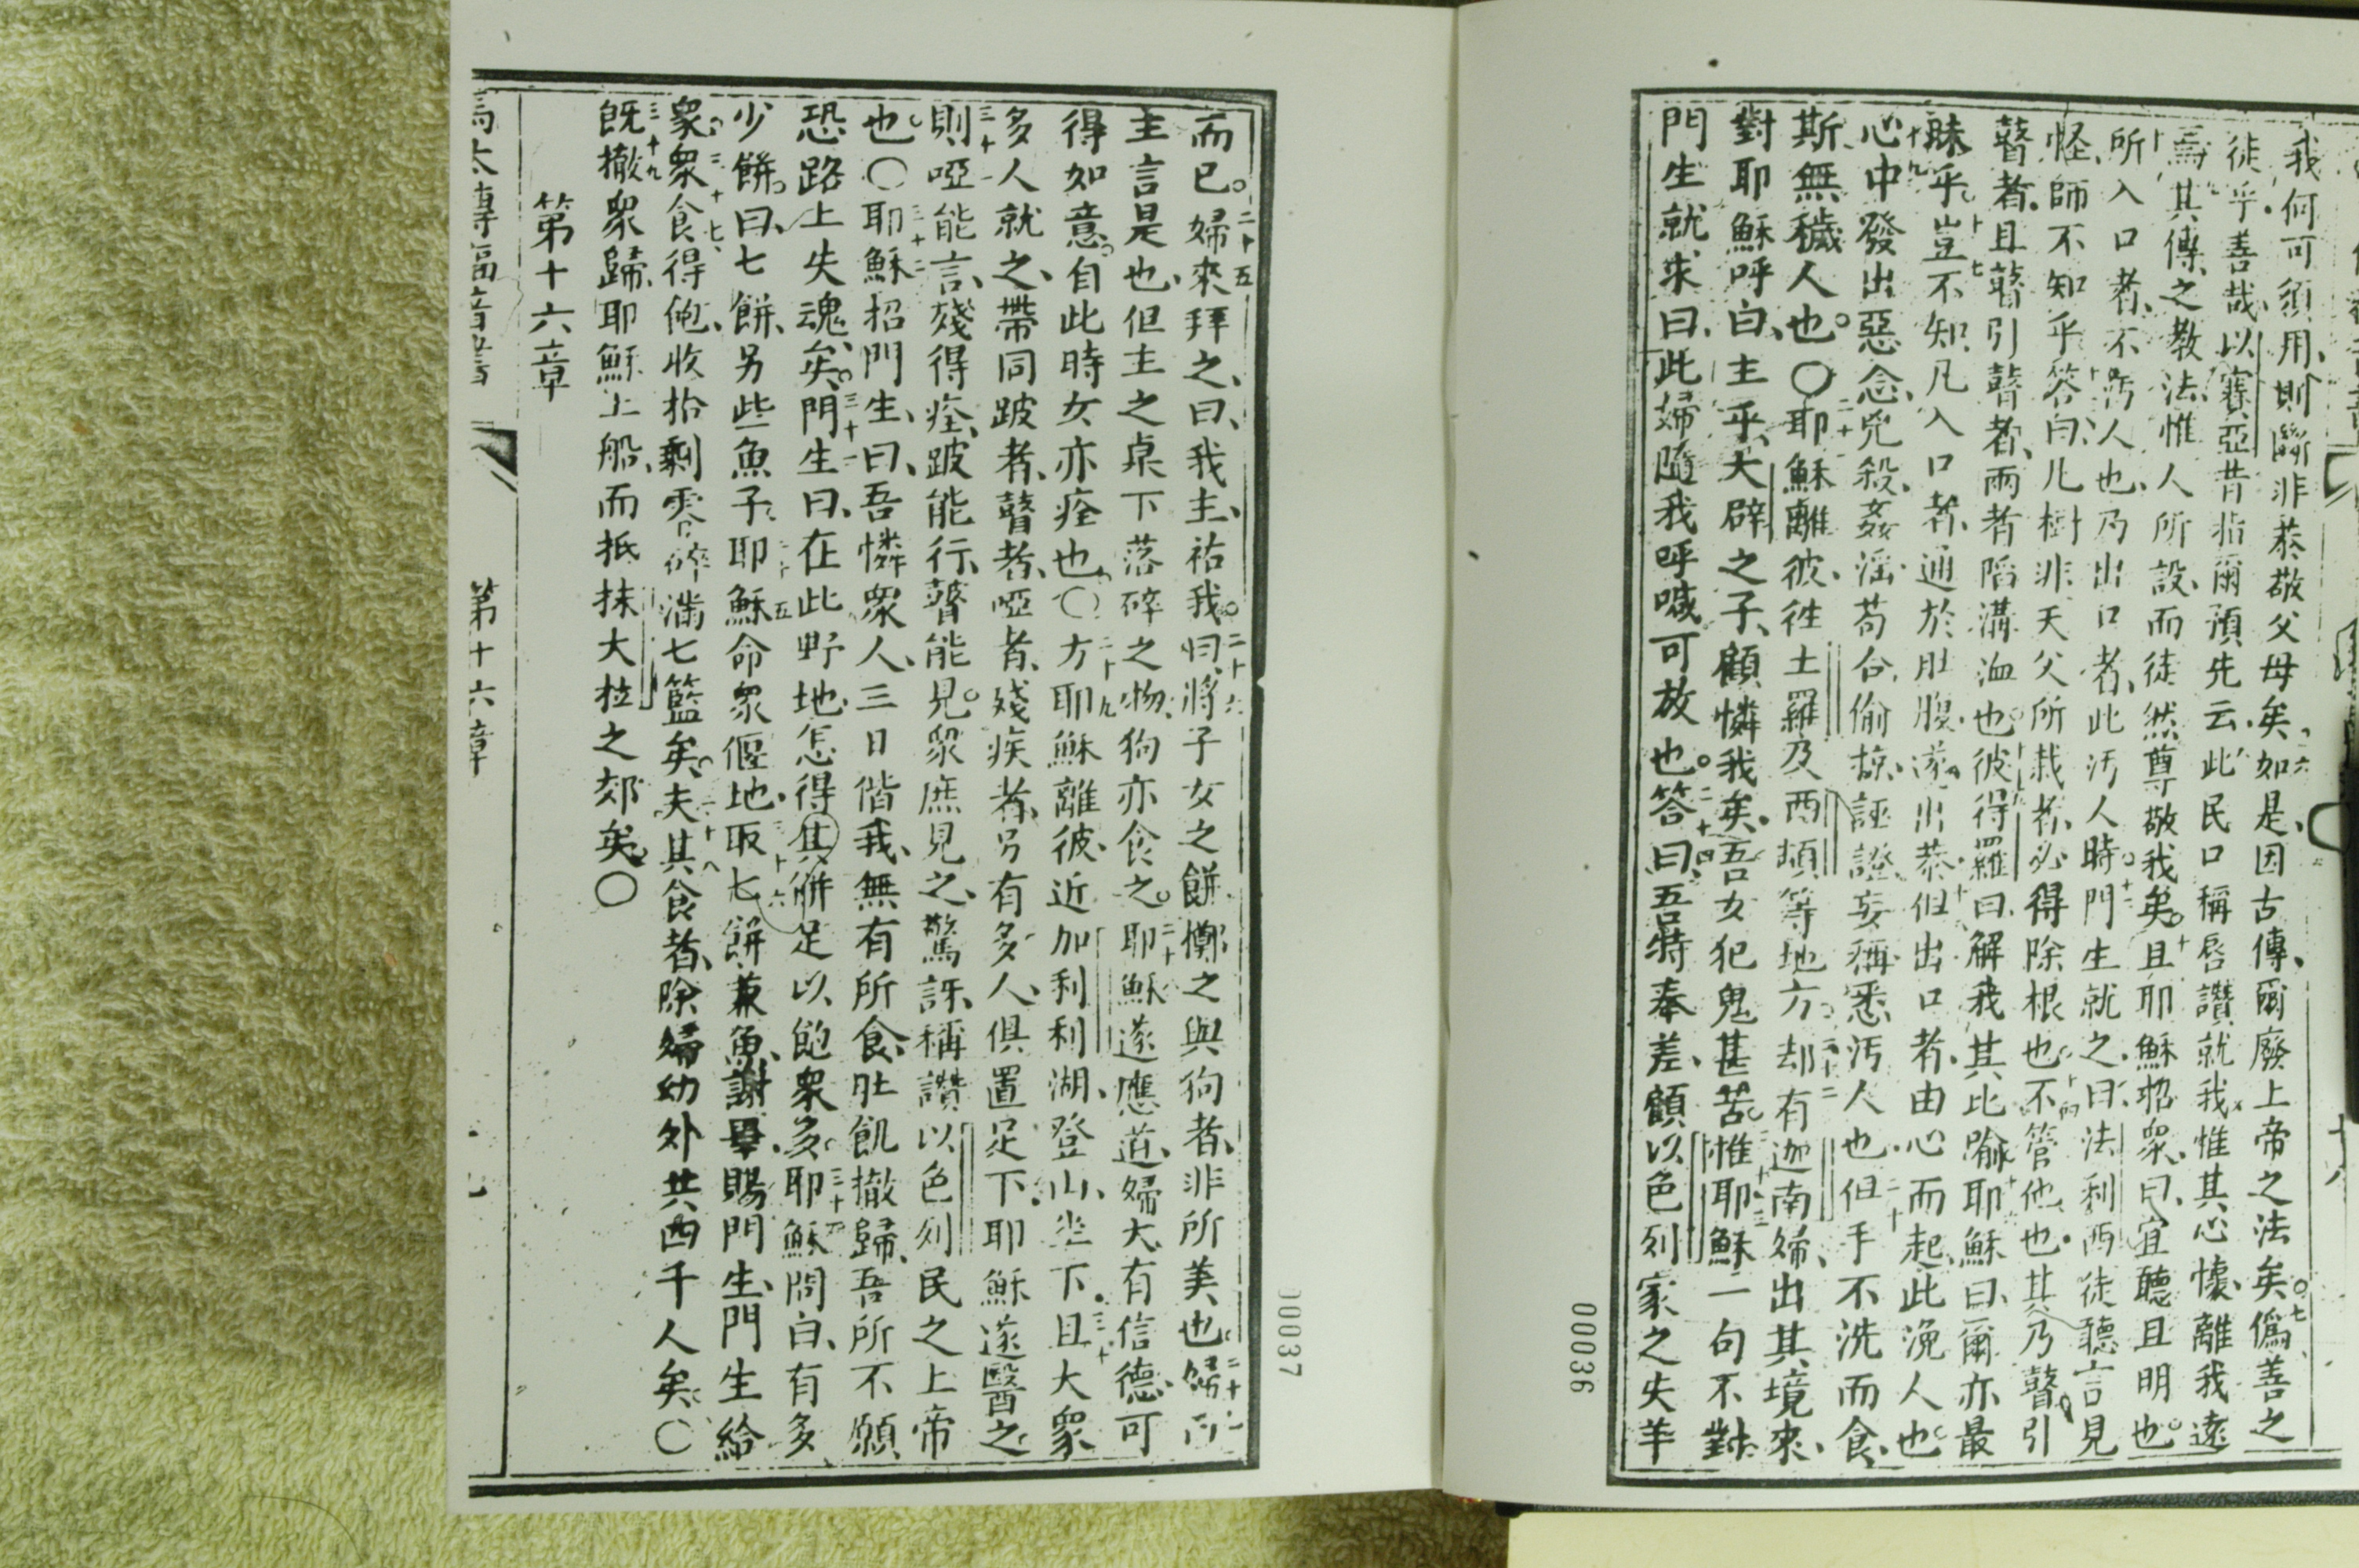 我何可須用、則斷非恭敬父母矣、如是、因古傳、爾廢上帝之法矣。僞善之
徒乎、善哉、以賽亞昔指爾預先云、此民口稱唇讚就我、惟其心懷離我遠
焉、其傳之教法、惟人所設、而徒然尊敬我矣。且耶穌招衆、曰、宜聽且明也。
所入口者、不污人也、乃出口者、此污人。時門生就之、曰、法利西徒聽言見
怪、師不知乎、答曰、凡樹非天父所栽者、必得除根也。不管他也、其乃瞽引
瞽者、且瞽引瞽者、兩者陷溝洫也。彼得羅曰、解我其比喻、耶穌曰、爾亦最
昧乎。豈不知凡入口者、通於肚腹、遂出恭、但出口者、由心而起、此浼人也。
心中發出惡念、兇殺、姦淫、苟合、偷掠、誣證、妄稱、悉污人也、但手不洗而食、
斯無穢人也。〇耶穌離彼、徃土羅及西頓等地方、却有迦南婦、出其境來、
對耶穌呼曰、主乎、大辟之子、顧憐我矣、吾女犯鬼甚苦。惟耶穌一句不對、
門生就求曰、此婦隨我呼喊、可放也。答曰、吾特奉差、顧以色列家之失羊
00036
而已。婦來拜之、曰、我主、祐我。曰、將子女之餅擲之與狗者、非所美也。婦
主言是也、但主之桌下落碎之物、狗亦食之。耶穌遂應道、婦大有信德、可
得如意。自此時女亦痊也。〇方耶穌離彼、近加利利湖、登山、坐下、且大衆
多人就之、帶同跛者、瞽者、啞者、殘疾者、另有多人、俱置足下、耶穌遂醫之
則啞能言、殘得痊、跛能行、瞽能見。衆庶見之、驚訝、稱讚以色列民之上帝
也。〇耶穌招門生、曰、吾憐衆人、三日偕我、無有所食、肚飢撤歸、吾所不願
恐路上失魂矣。門生曰、在此野地、怎得其餅足以飽衆多。耶穌問曰、有多
少餅。曰、七餅、另些魚子、耶穌命衆偃地、取七餅兼魚、謝畢、賜門生、門生給
衆。衆食得飽、收拾剩零碎滿七籃矣。夫其食者、除婦幼外共四千人矣。〇
既撤衆歸、耶穌上船、而抵抹大拉之郊矣。〇
第十六章
馬太傳福音書 第十六章
00037